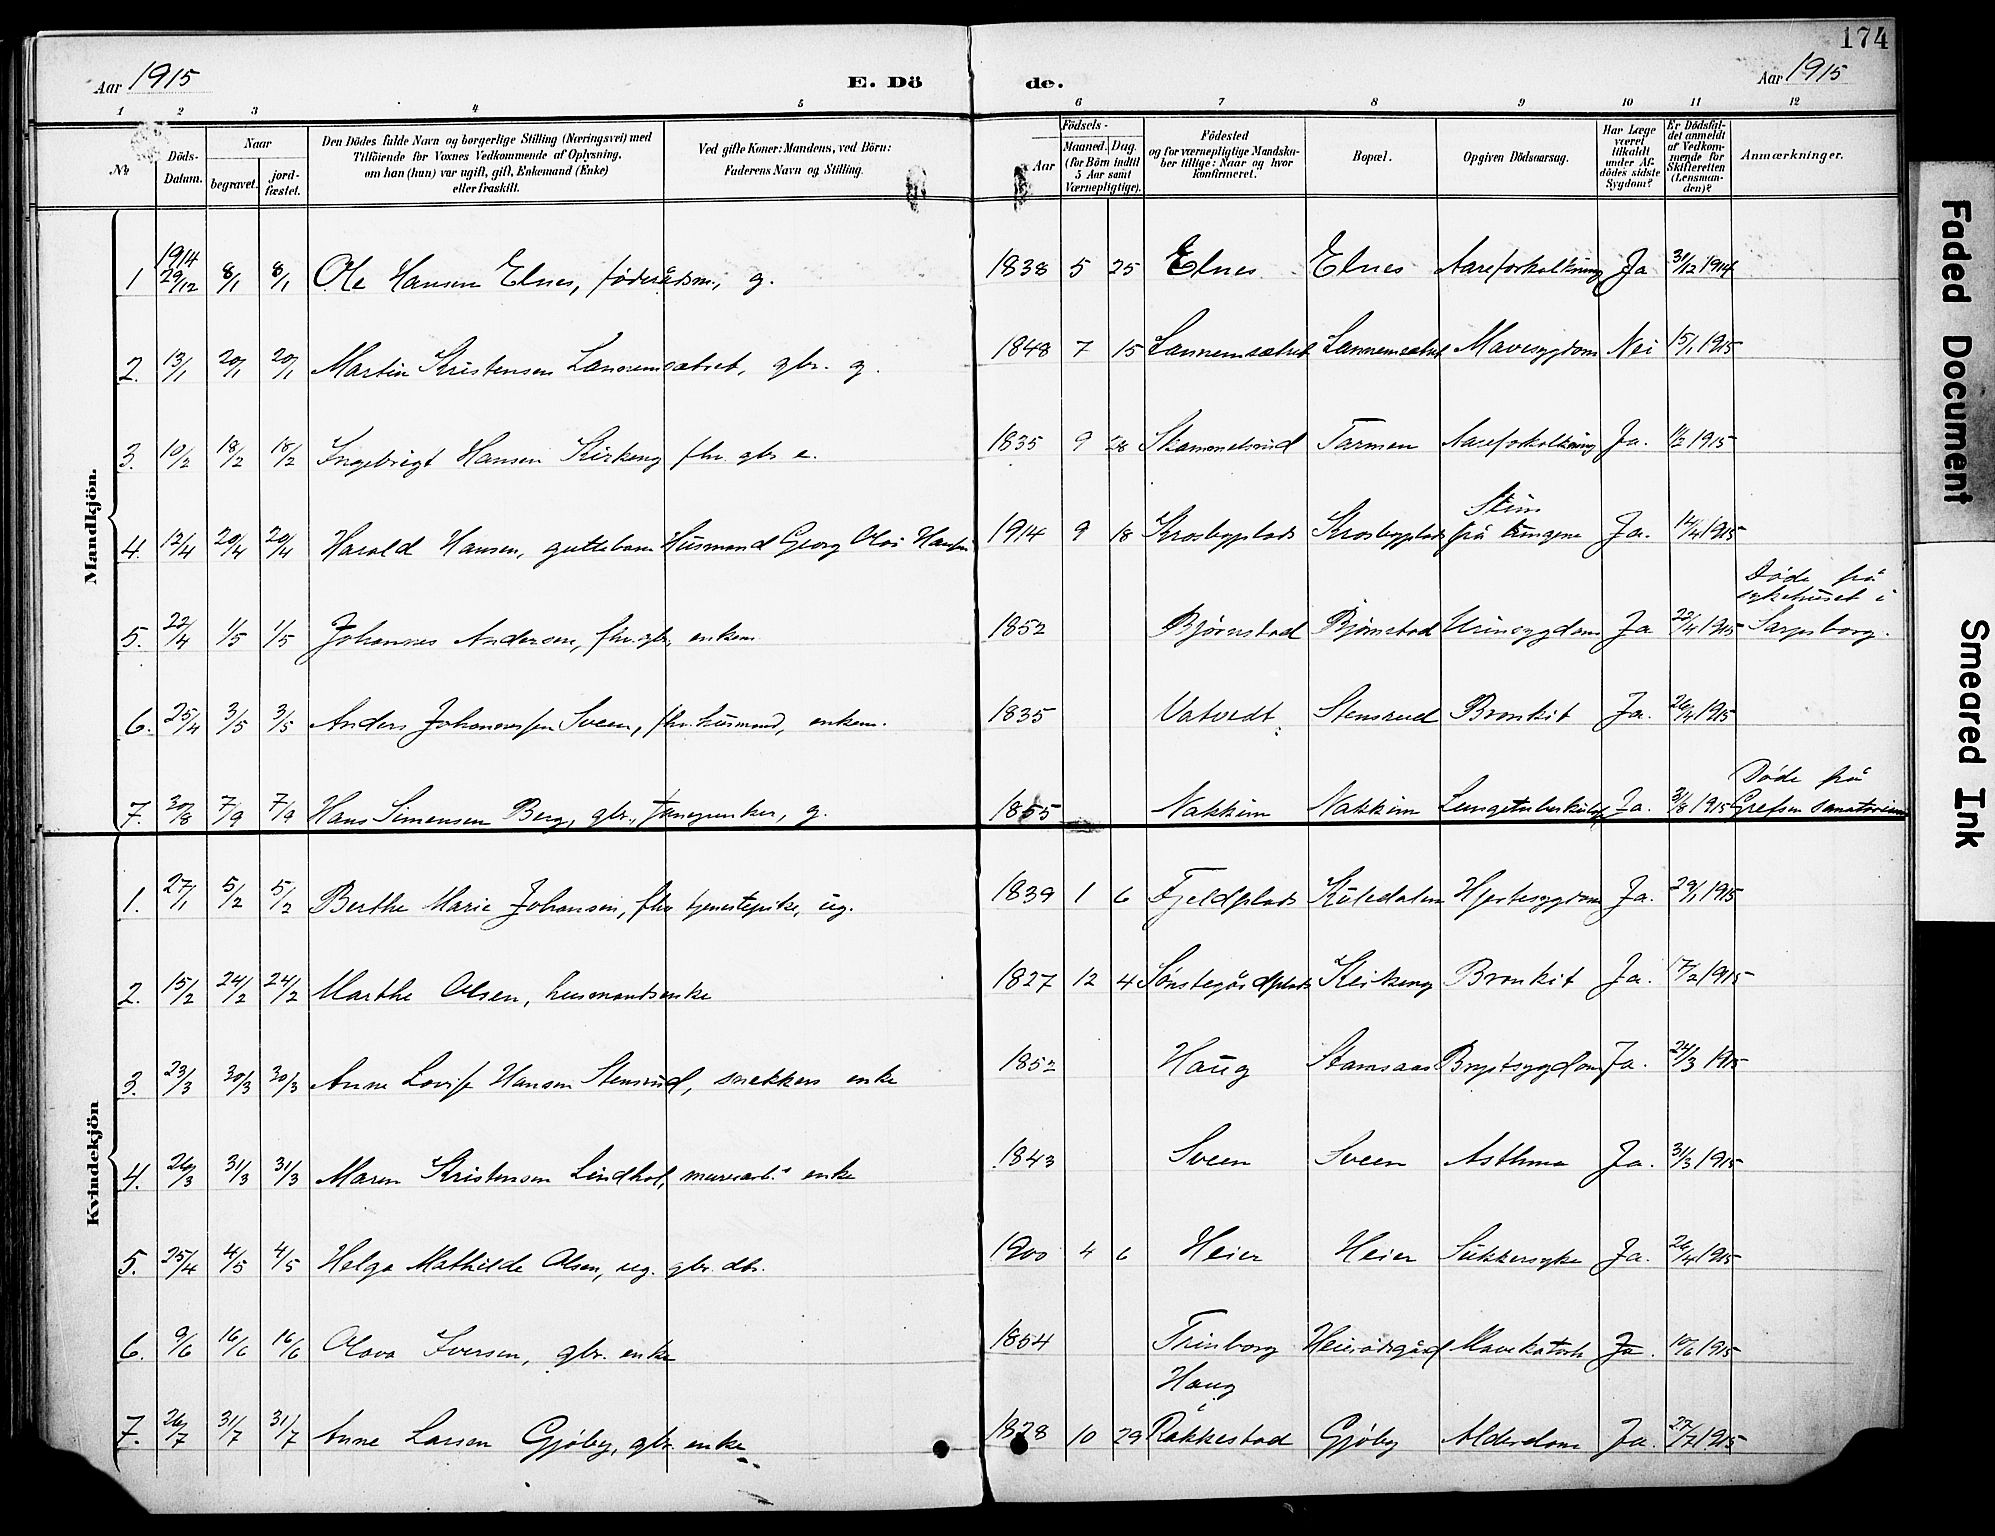 174
Aar 1915 E. Dö de. Aar 1915
1 2 3 4 5 6 7 8 9 10 11 12
№ Döds-Datum. Naar begravet. jord-fæstet. Den Dödes fulde Navn og borgerlige Stilling (Næringsvei) med Tilföiende for Voxnes Vedkommende af Oplysning, om han (hun) var ugift, gift, Enkemand (Enke) eller fraskilt. Ved gifte Koner: Mandens, ved Börn: Faderens Navn og Stilling. Födsels- Aar Maaned. Dag. (for Börn indtil 5 Aar samt Værnepligtige). Födested og for værnepligtige Mandskaber tillige: Naar og hvor konfirmeret. Bopæl. Opgiven Dödsaarsag. Har Læge været tilkaldt under Afdödes sidste Sygdom? Er Dödsfaldet anmeldt af Vedkommende for Skifteretten (Lensmanden)? Anmærkninger.
Mandkjön.
1 1914 29/12 8/1 8/1 Ole Hansen Elnes, føderådsm, g. 1838 5 25 Elnes Elnes Aareforkalkning Ja 31/12 1914
2. 13/1 20/1 20/1 Martin Kristensen Lannemsætret, gbr. g. 1848 7 15 Lannemsætret Lannemsætret Mavesygdom Nei 15/1 1915
3. 10/2 18/2 18/2 Ingebrigt Hansen Kirkeng fhv. gbr e. 1835 9 28 Skammelsrud Tarmen Aareforkalkning Ja. 1915
4. 12/4 20/4 20/4 Harald Hansen, guttebarn Husmand Georg Olai Hansen 1914 9 18 Krosbyplads Krosbyplads Slim på lungene Ja. 14/4 1915
5. 22/4 1/5 1/5 Johannes Andersen, fhv. gbr, enkem. 1852 Bjørnstad Bjørnstad Urinsygdom Ja 22/4 1915 Døde på sykehuset i Sarpsborg.
6. 25/4 3/5 3/5 Anders Johannessen Sveen, fhv. husmand, enkem. 1835 Vatvedt. Stensrud Bronkit Ja. 26/4 1915
7. 30/8 7/9 7/9 Hans Simensen Berg, gbr., g. 1855 Nakkim Nakkim Lungetuberkulose Ja. 31/8 1915 Døde på Grefsen sanatorium
Kvindekjön
1. 27/1 5/2 5/2 Berthe Marie Johansen, fhv tjenestepike, ug. 1839 1 6 Fjeldplads Kuledalen Hjertesygdom Ja. 29/1 1915
2. 15/2 24/2 24/2 Marthe Olsen, husmandsenke 1827 12 4 Sønstegårdplads Kirkeng Bronkit Ja. 17/2 1915
3. 23/3 30/3 30/3 Anne Lovise Hansen Stensrud, snekkers enke 1852 Haug Stamsaas Brystsygdom Ja. 24/3 1915
4. 26/3 31/3 31/3 Maren Kristensen Lindhol, murerarb.s enke 1843 Sveen Sveen Asthma Ja. 31/3 1915
5. 25/4 4/5 4/5 Helga Mathilde Olsen, ug. gbr. dtr. 1900 4 6 Heier Heier Sukkersyke Ja. 26/4 1915
6. 9/6 16/6 16/6 Olava Iversen, gbr. enke 1854 Trinborg Haug Heierødsgård Mavekatarh Ja. 10/6 1915
7. 26/7 31/7 31/7 Anne Larsen Gjøby, gbr. enke 1828 10 29 Rakkestad Gjøby Alderdom Ja. 27/7 1915
Faded Document
Smeared Ink